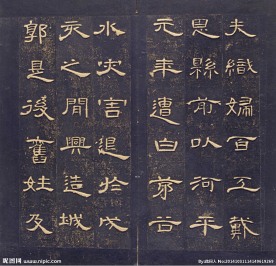 夫織婦百工戴
恩縣前以河平
元年遭白茅谷
水灾害退於戌
亥之間興造城
郭是後舊姓及
昵图网 www.nipic.com